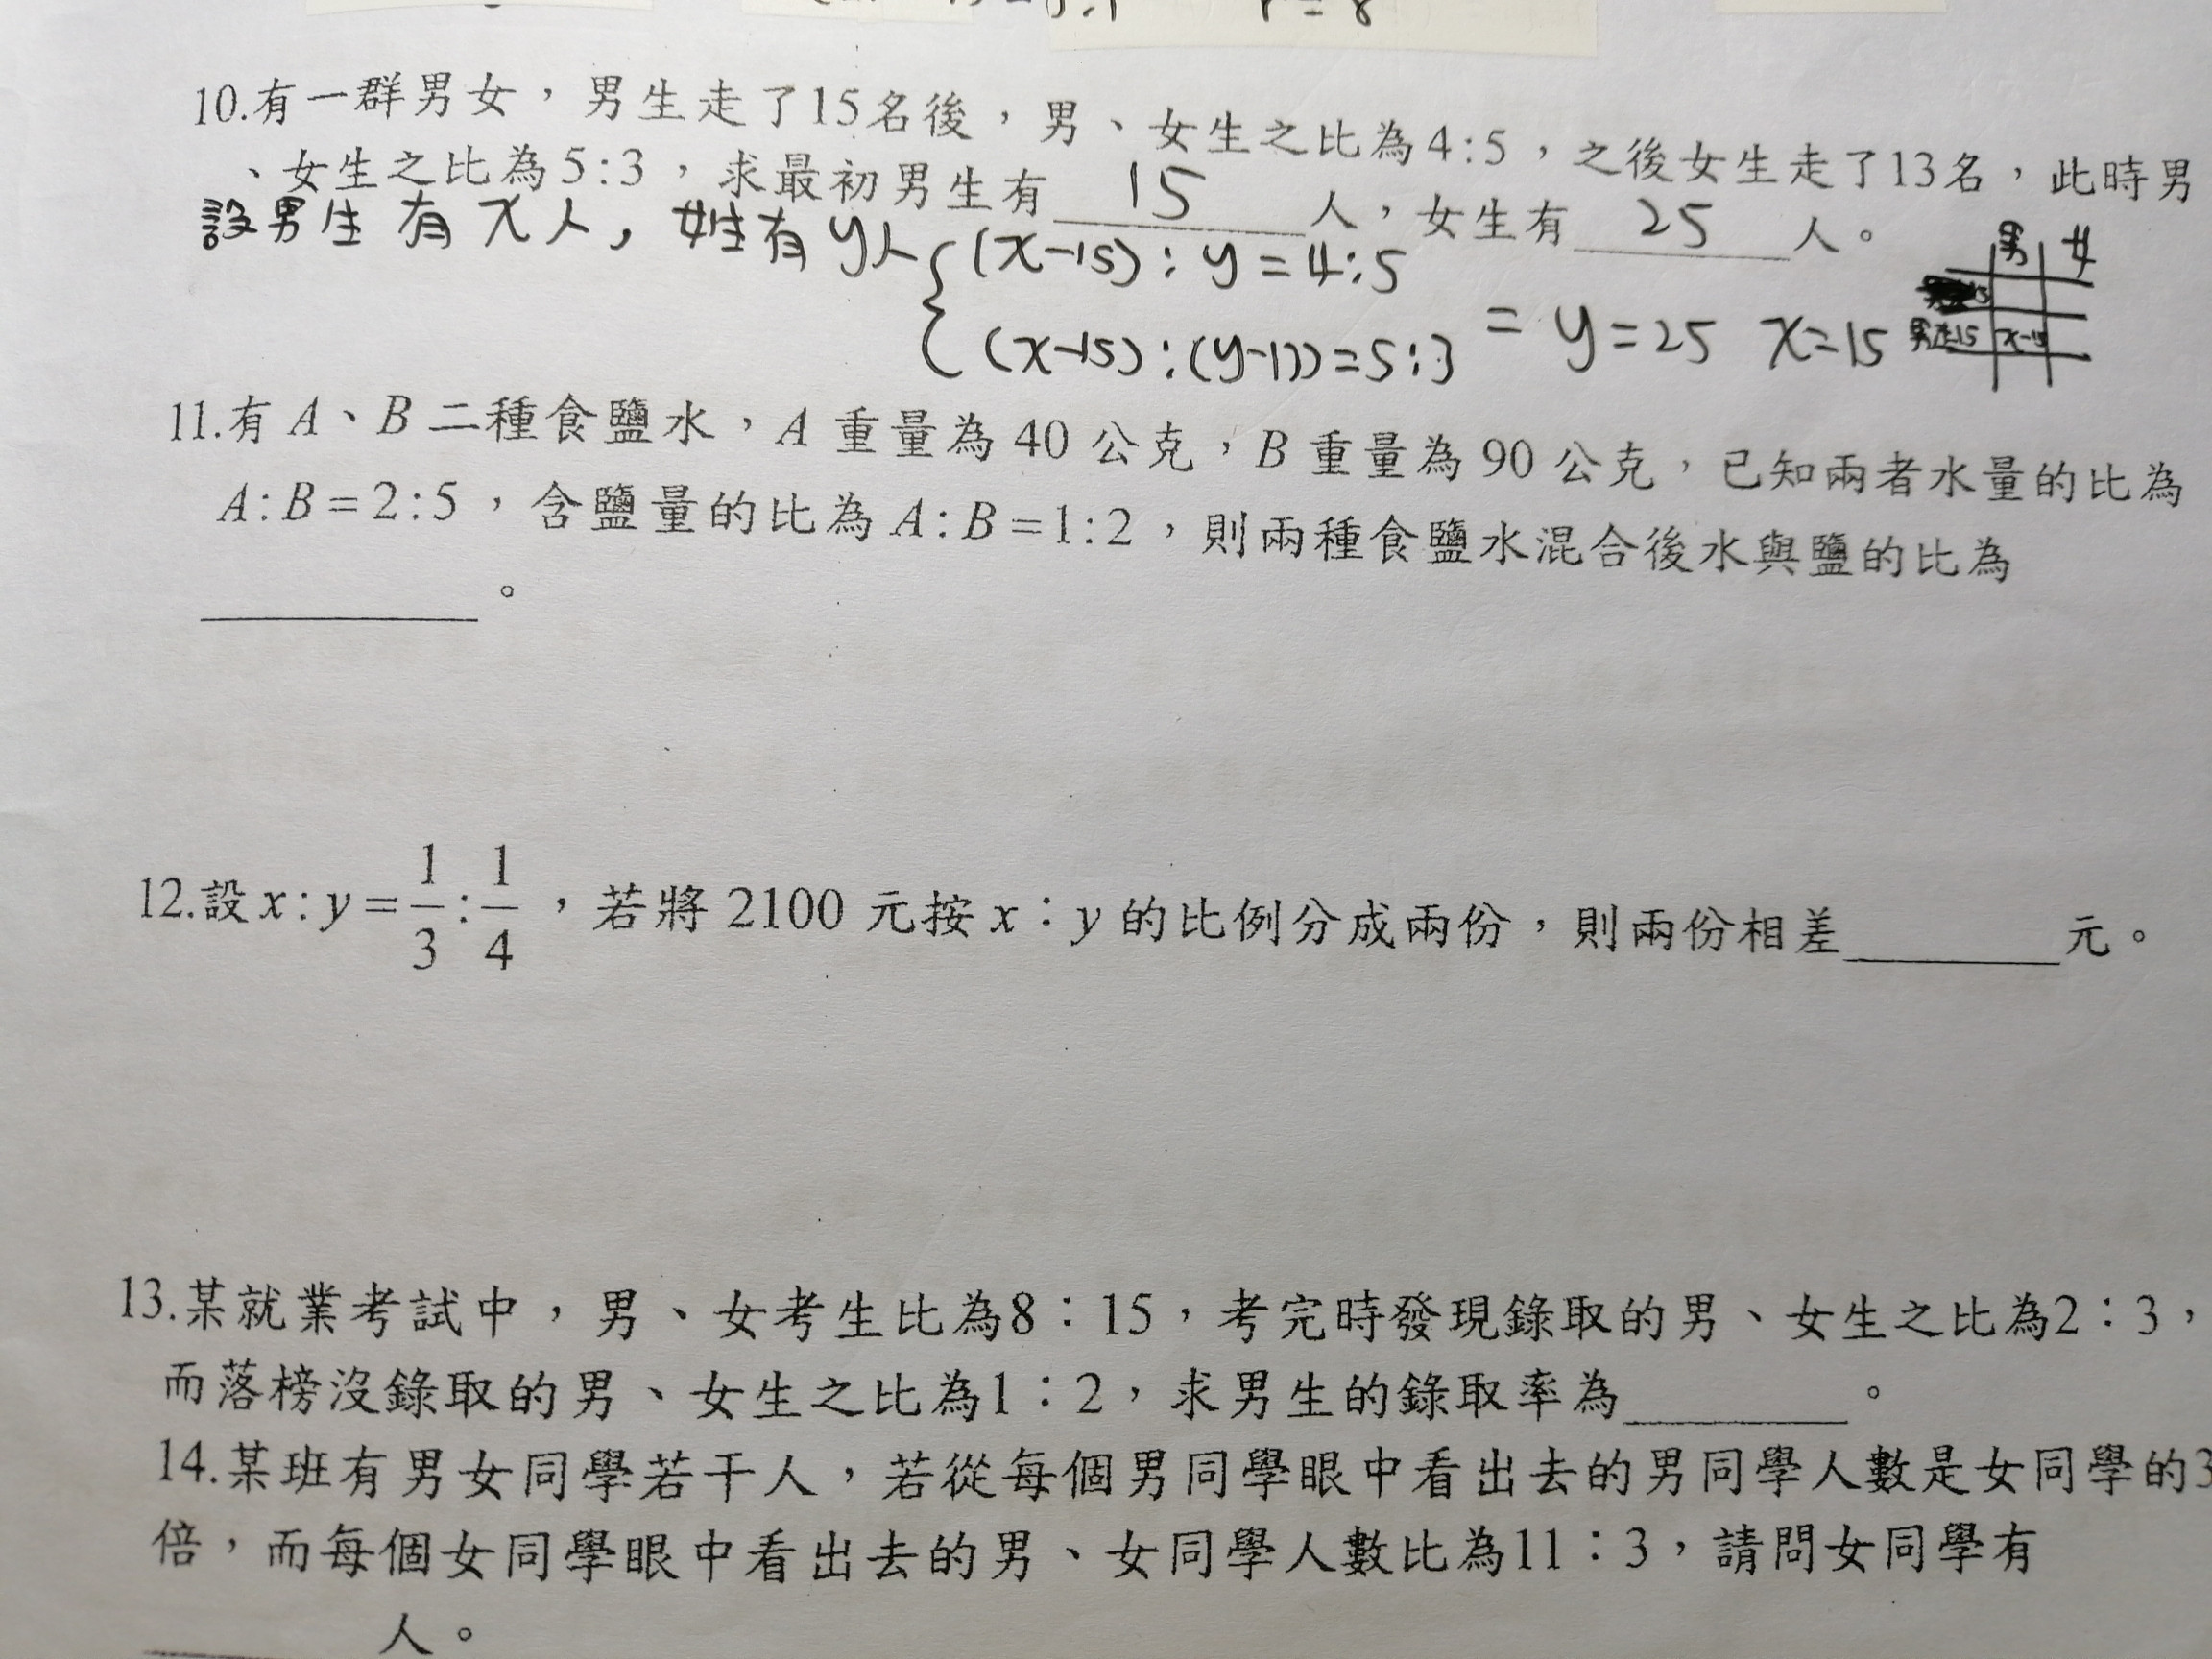 r = 8
10.有一群男女，男生走了15名後，男、女生之比為4:5，之後女生走了13名，此時男
、女生之比為5:3，求最初男生有 15 人，女生有 25 人。
設男生有x人，女生有y人 { (x-15):y=4:5
(x-15):(y-13)=5:3 = y=25 x=15
男 女
男走15 x-15
11.有 A、B 二種食鹽水，A 重量為 40 公克，B 重量為 90 公克，已知兩者水量的比為
A:B=2:5，含鹽量的比為 A:B=1:2，則兩種食鹽水混合後水與鹽的比為
________。
12.設 x:y=1/3:1/4，若將 2100 元按 x：y 的比例分成兩份，則兩份相差________元。
13.某就業考試中，男、女考生比為8：15，考完時發現錄取的男、女生之比為2：3，
而落榜沒錄取的男、女生之比為1：2，求男生的錄取率為________。
14.某班有男女同學若干人，若從每個男同學眼中看出去的男同學人數是女同學的3
倍，而每個女同學眼中看出去的男、女同學人數比為11：3，請問女同學有
________人。